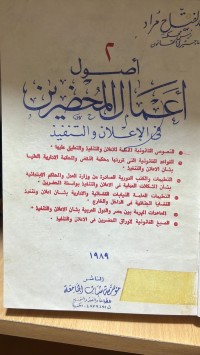 عبد الفتاح مراد
٢
أصول
أعمال المحضرين
في الإعلان والتنفيذ
النصوص القانونية الحاكمة للاعلان والتنفيذ والتعليق عليها
القواعد القانونية التى قررتها محكمة النقض والمحكمة الادارية العليا
بشأن الاعلان والتنفيذ
التعليمات والكتب الدورية الصادرة من وزارة العدل والمحاكم الابتدائية
بشأن المشكلات العملية فى الاعلان والتنفيذ بواسطة المحضرين
التعليمات العامة للنيابات القضائية والادارية بشأن اعلان وتنفيذ
القضايا الجنائية فى الداخل والخارج
المعاهدات المبرمة بين مصر والدول العربية بشأن الاعلان والتنفيذ
الصيغ القانونية لأوراق المحضرين فى الاعلان والتنفيذ
١٩٨٩
الناشر
مؤسسة شباب الجامعة